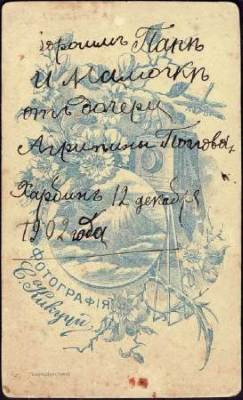 дорогимъ Папѣ
и Мамочкѣ
отъ дочери
Агрипины Поповой,
Харбинъ 12 декабря
1902 года
ФОТОГРАФІЯ
С. Кикучи.